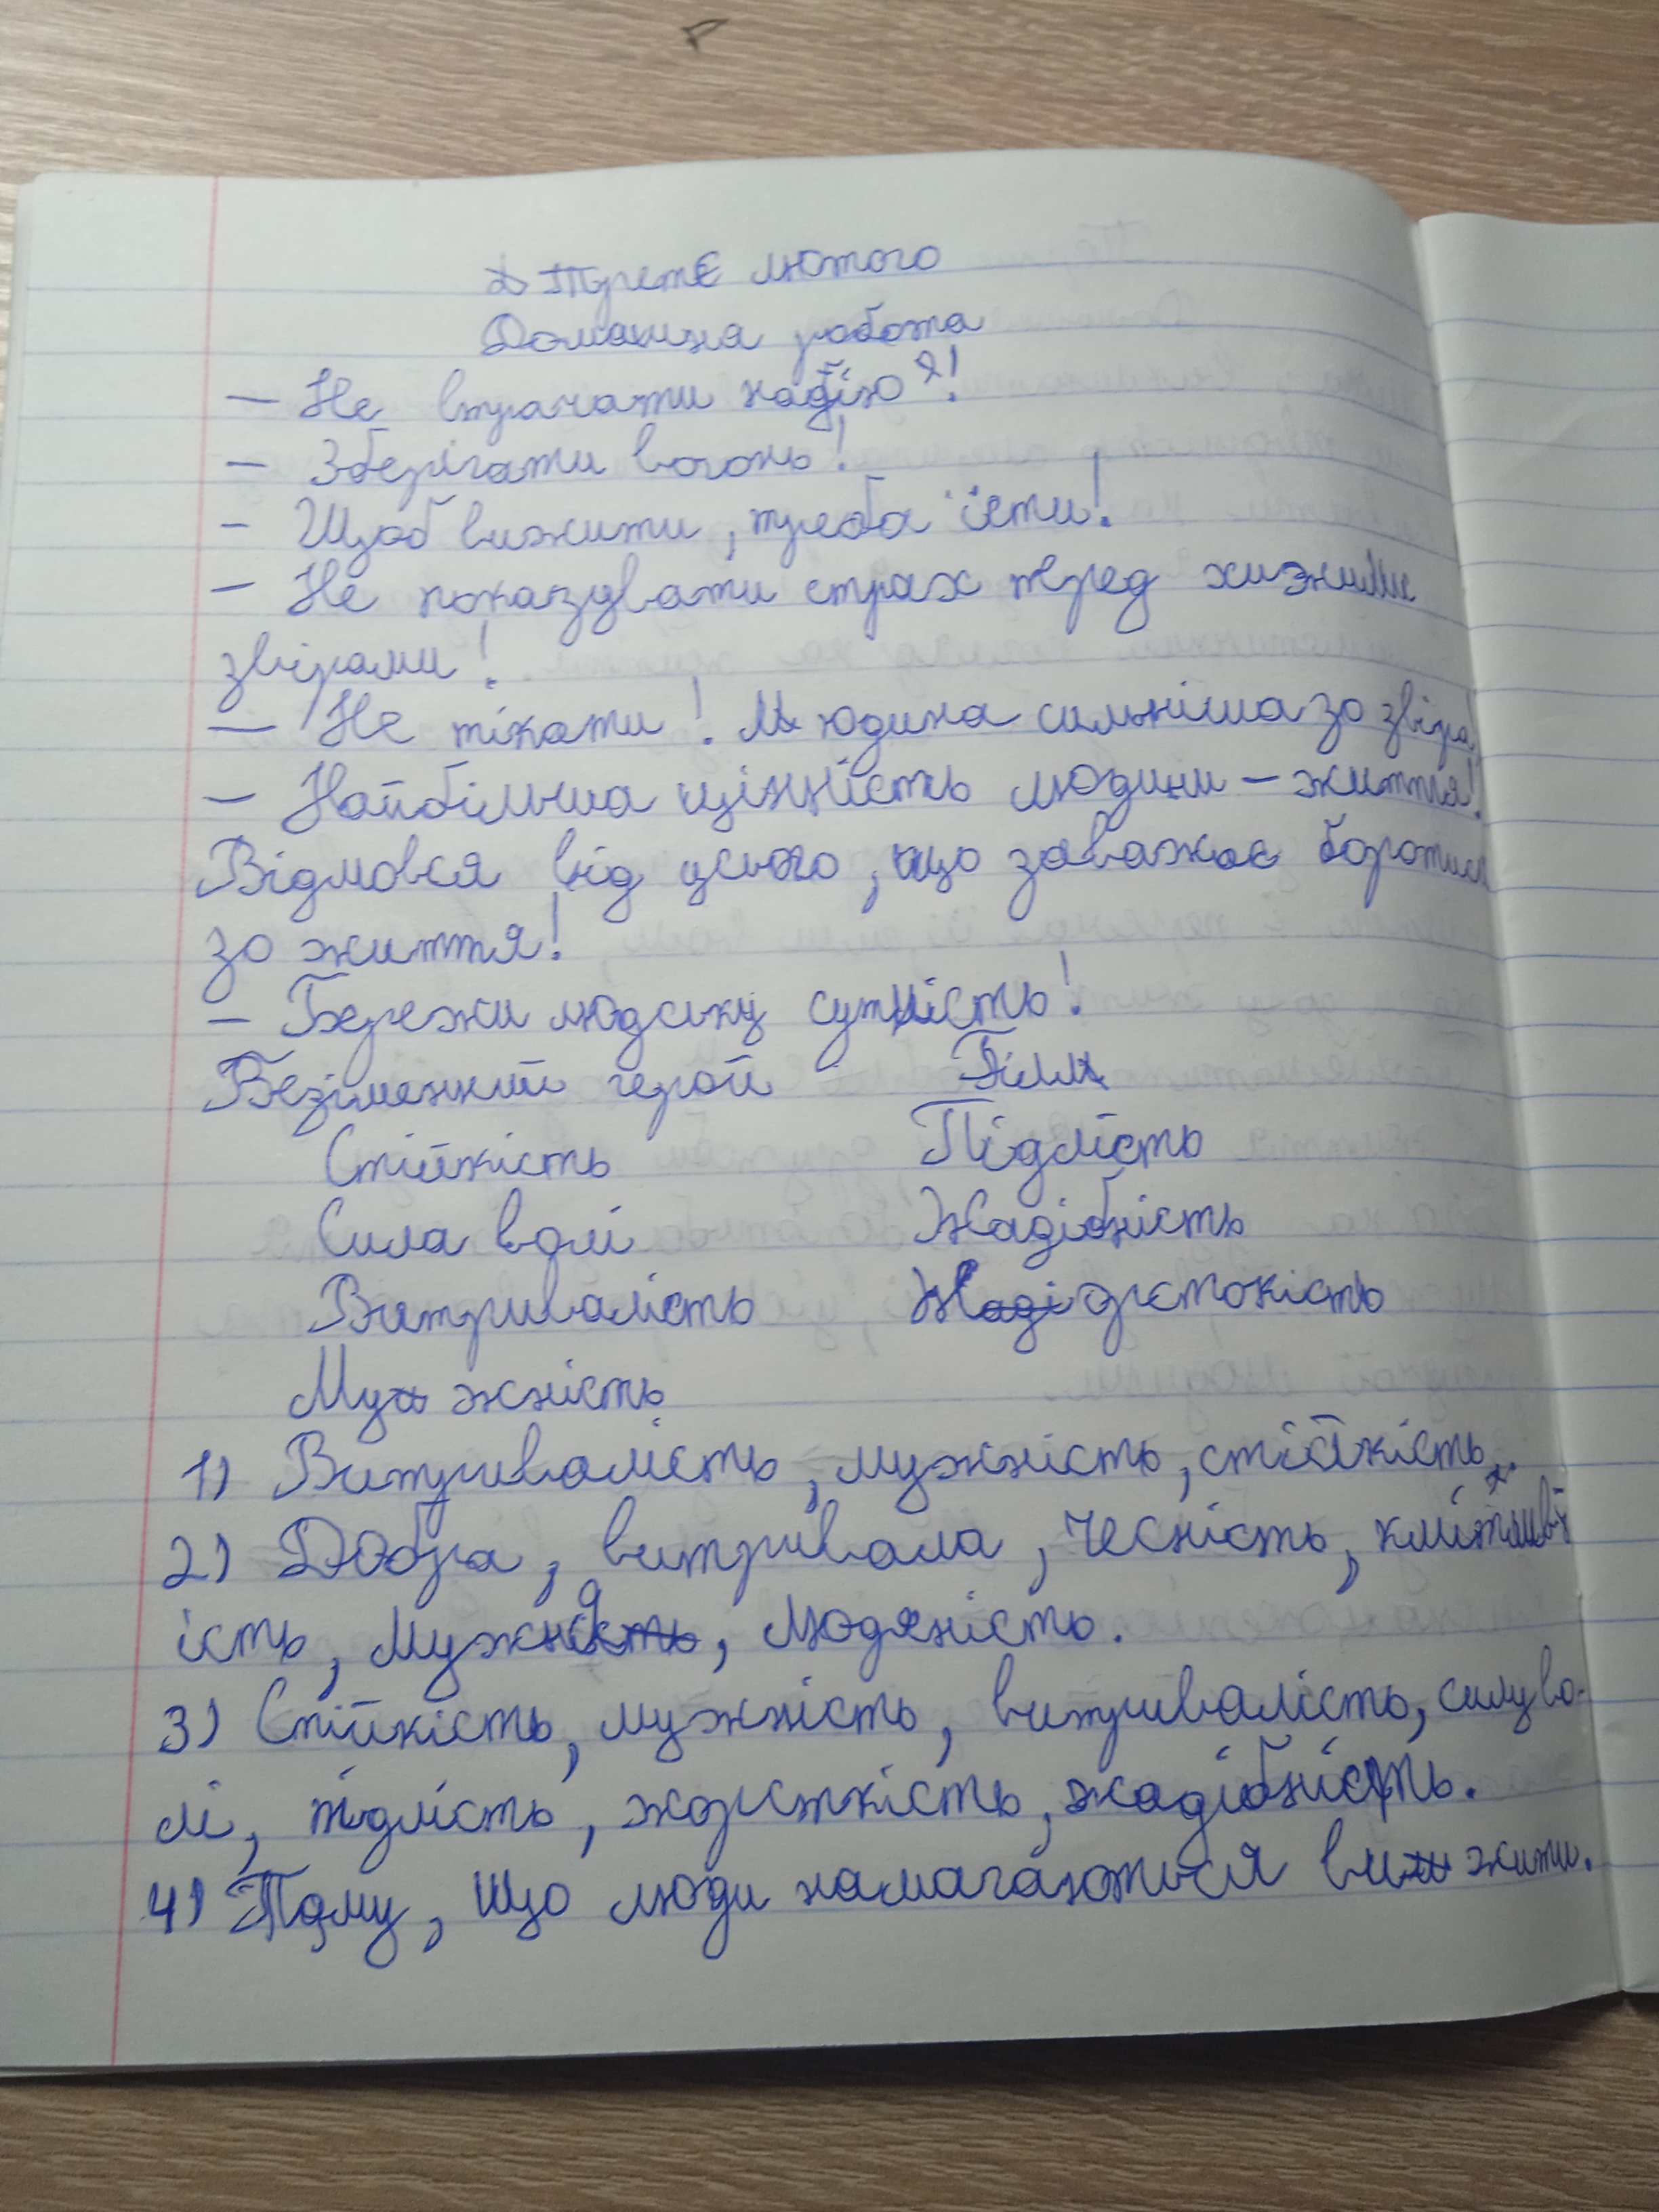 Третє лютого
Домашня робота
— Не втрачати надію!
— Зберігати вогонь!
— Щоб вижити, треба їсти!
— Не показувати страх перед хижими
звірами!
— Не тікати! Людина сильніша за звіра!
— Найбільша цінність людини — життя!
Відмовся від усього, що заважає боротись
за життя!
— Бережи людську сутність!
Безіменний герой Білл
Стійкість Підлість
Сила волі Жадібність
Витривалість Жорстокість
Мужність
1) Витривалість, мужність, стійкість.
2) Добра, витривала, чесність, кмітлив
ість, мужня, людяність.
3) Стійкість, мужність, витривалість, силу во-
лі, підлість, жорсткість, жадібність.
4) Тому, що люди намагаються вижити.